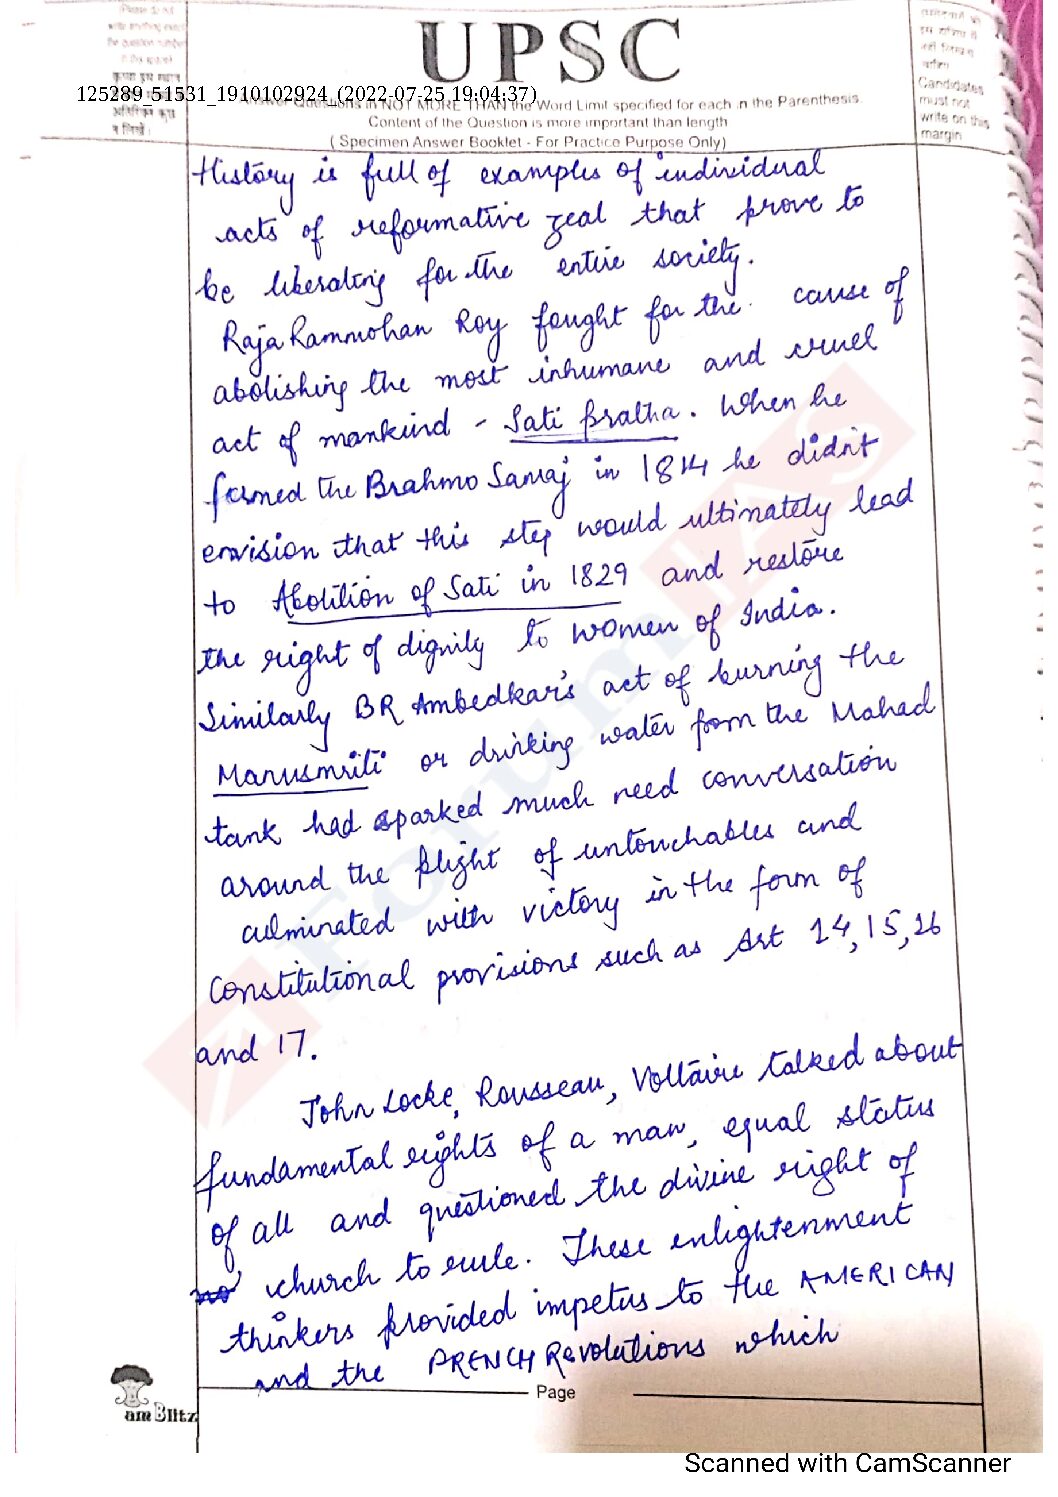 (Please do not
write anything except
the question number
in this space)
कृपया इस स्थान
अतिरिक्त कुछ
न लिखें।
UPSC
125289_51531_1910102924_(2022-07-25 19:04:37)
Answer Questions in NOT MORE THAN the Word Limit specified for each in the Parenthesis.
Content of the Question is more important than length
( Specimen Answer Booklet - For Practice Purpose Only)
Candidates
must not
write on this
margin
History is full of examples of individual
acts of reformative zeal that prove to
be liberating for the entire society.
Raja Rammohan Roy fought for the cause of
abolishing the most inhumane and cruel
act of mankind - Sati Pratha. When he
formed the Brahmo Samaj in 1814 he didn't
envision that this step would ultimately lead
to Abolition of Sati in 1829 and restore
the right of dignity to women of India.
Similarly BR Ambedkar's act of burning the
Manusmriti or drinking water from the Mahad
tank had sparked much need conversation
around the plight of untouchables and
culminated with victory in the form of
Constitutional provisions such as Art 14, 15, 16
and 17.
John Locke, Rousseau, Voltaire talked about
fundamental rights of a man, equal status
of all and questioned the divine right of
church to rule. These enlightenment
thinkers provided impetus to the AMERICAN
and the FRENCH Revolutions which
Page
am Blitz
ForumIAS
Scanned with CamScanner